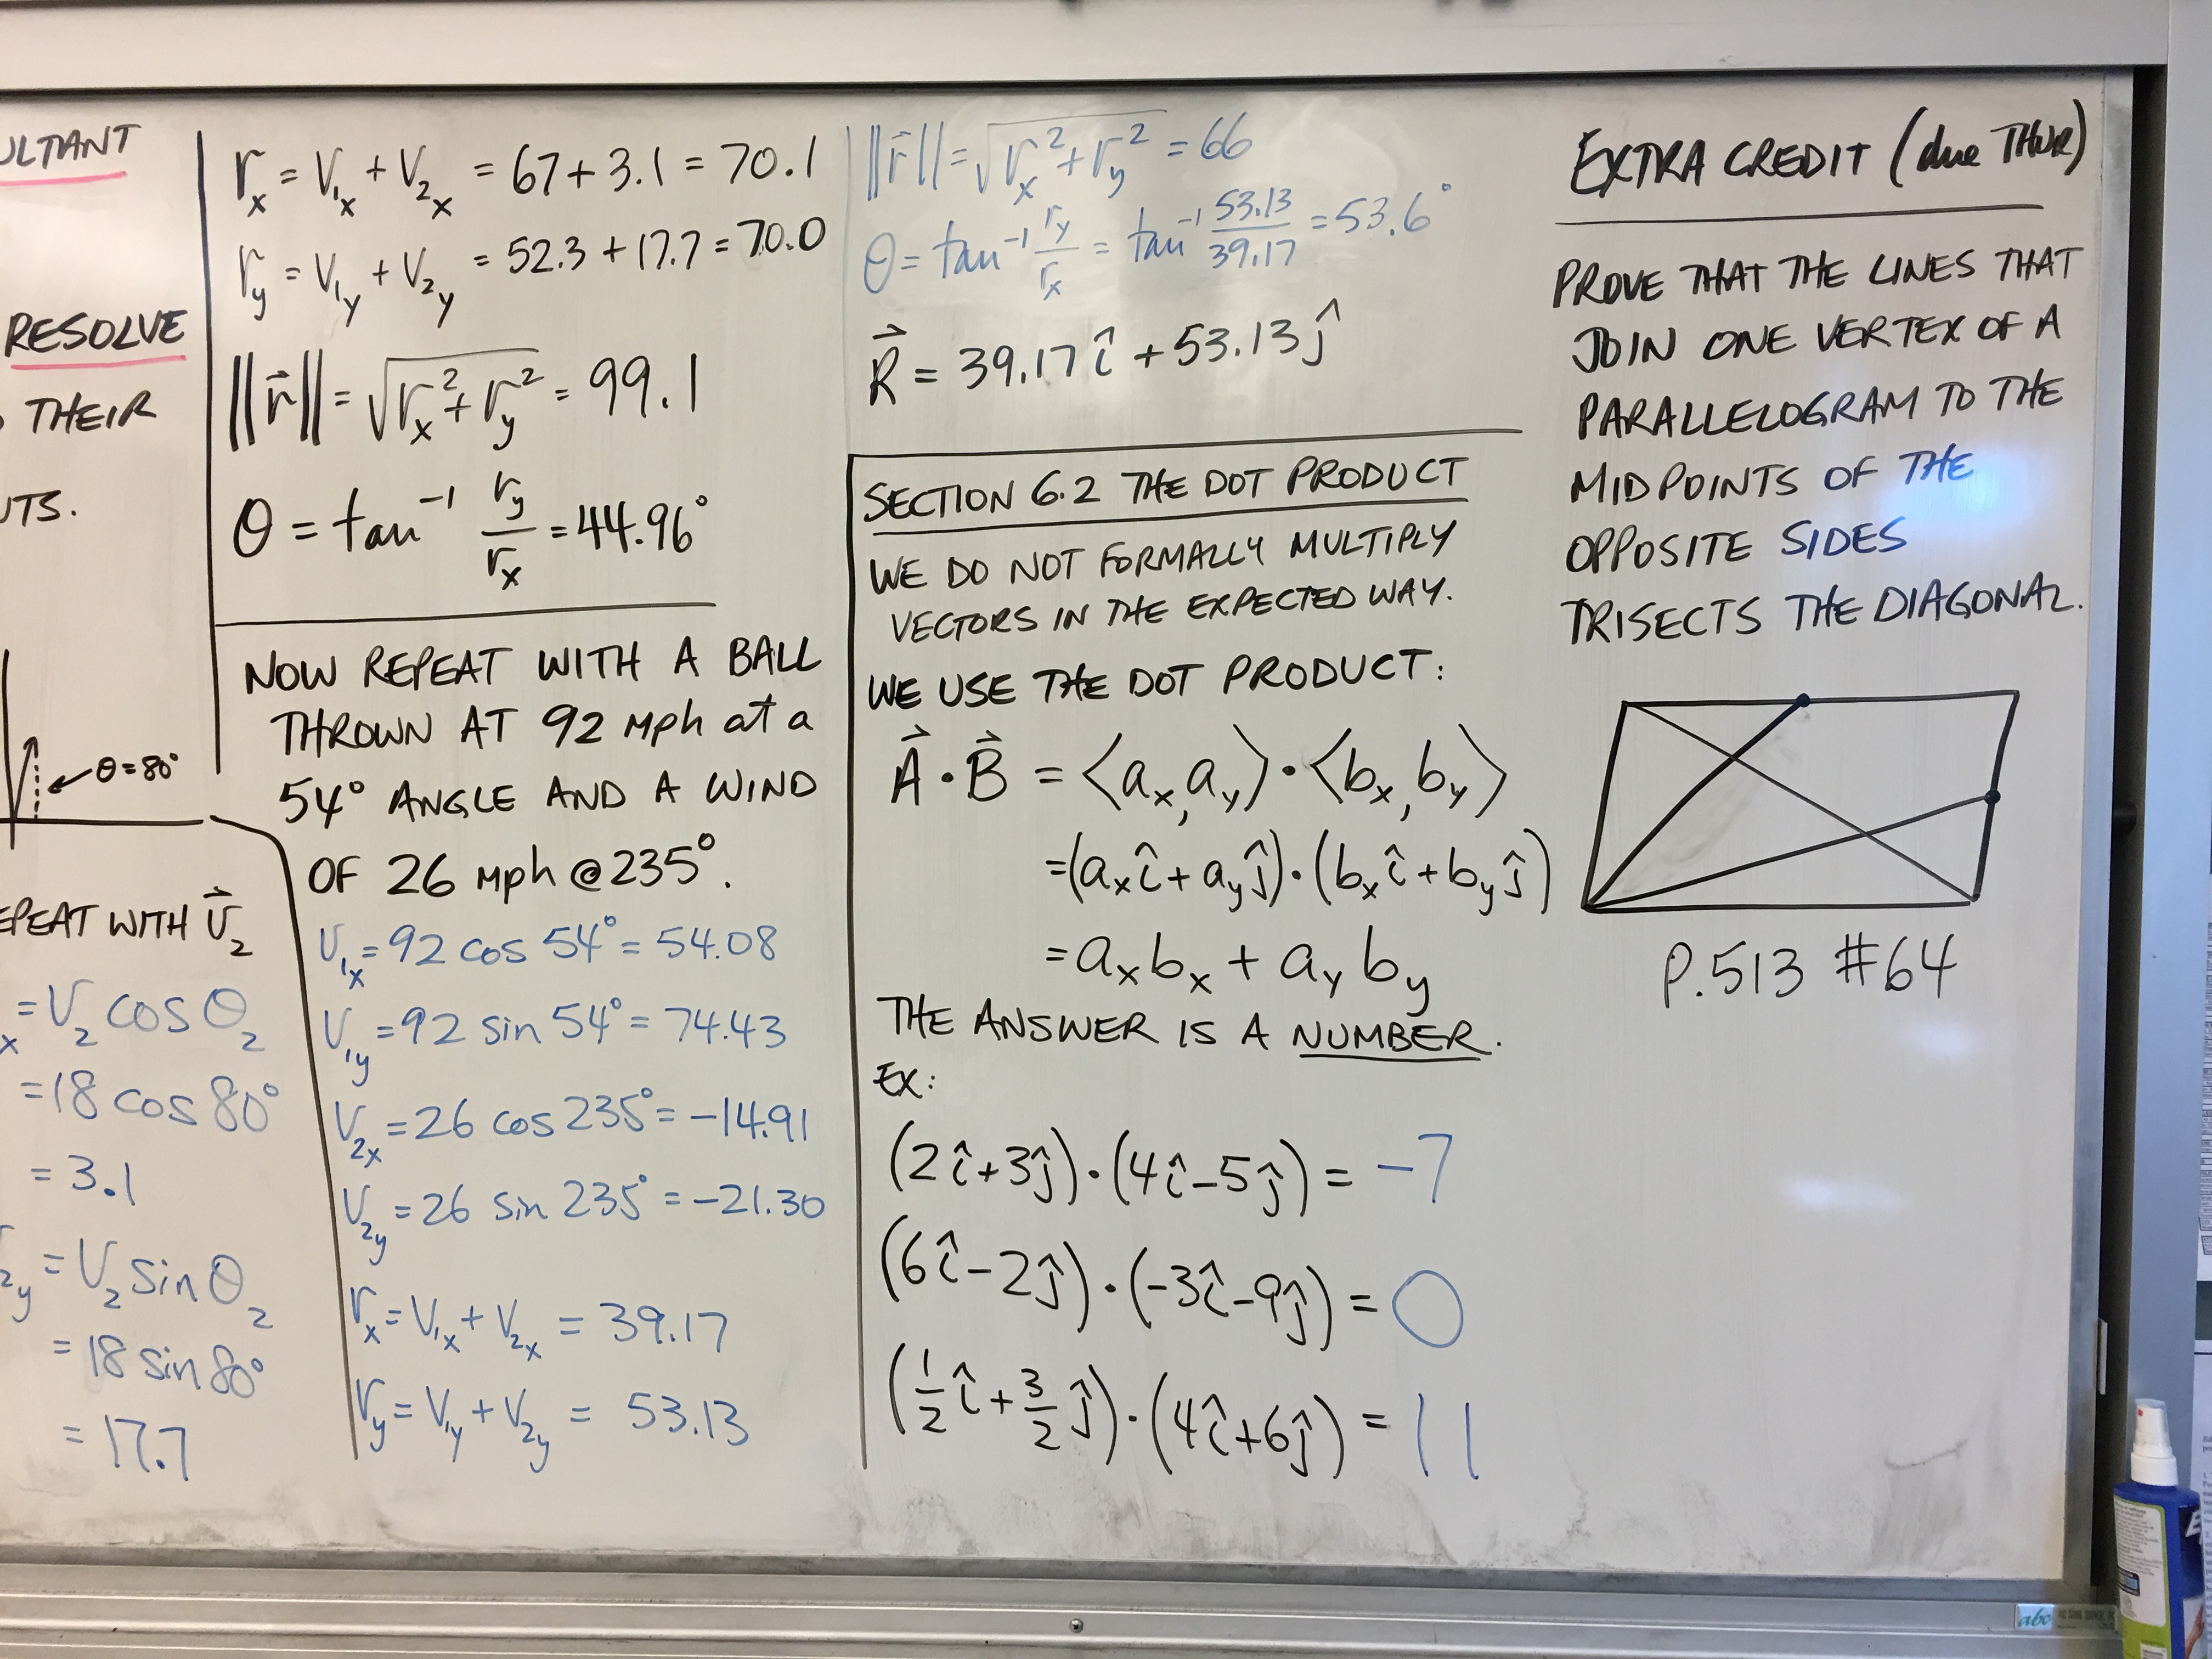 ULTANT
RESOLVE
THEIR
NTS.
θ = 80°
EPEAT WITH V⃗₂
x = V₂ cos θ₂
= 18 cos 80°
= 3.1
2y = V₂ sin θ₂
= 18 sin 80°
= 17.7
rₓ = V₁ₓ + V₂ₓ = 67 + 3.1 = 70.1
r_y = V₁y + V₂y = 52.3 + 17.7 = 70.0
||r⃗|| = √(rₓ² + r_y²) = 99.1
θ = tan⁻¹ r_y/rₓ = 44.96°
NOW REPEAT WITH A BALL
THROWN AT 92 mph at a
54° ANGLE AND A WIND
OF 26 mph @ 235°.
V₁ₓ = 92 cos 54° = 54.08
V₁y = 92 sin 54° = 74.43
V₂ₓ = 26 cos 235° = -14.91
V₂y = 26 sin 235° = -21.30
rₓ = V₁ₓ + V₂ₓ = 39.17
r_y = V₁y + V₂y = 53.13
||r⃗|| = √(rₓ² + r_y²) = 66
θ = tan⁻¹ r_y/rₓ = tan⁻¹ 53.13/39.17 = 53.6°
R⃗ = 39.17 î + 53.13 ĵ
SECTION 6.2 THE DOT PRODUCT
WE DO NOT FORMALLY MULTIPLY
VECTORS IN THE EXPECTED WAY.
WE USE THE DOT PRODUCT:
A⃗ · B⃗ = ⟨aₓ, a_y⟩ · ⟨bₓ, b_y⟩
= (aₓ î + a_y ĵ) · (bₓ î + b_y ĵ)
= aₓ bₓ + a_y b_y
THE ANSWER IS A NUMBER.
EX:
(2î + 3ĵ) · (4î - 5ĵ) = -7
(6î - 2ĵ) · (-3î - 9ĵ) = 0
(1/2 î + 3/2 ĵ) · (4î + 6ĵ) = 11
EXTRA CREDIT (due THUR)
PROVE THAT THE LINES THAT
JOIN ONE VERTEX OF A
PARALLELOGRAM TO THE
MIDPOINTS OF THE
OPPOSITE SIDES
TRISECTS THE DIAGONAL.
P.513 #64
abc